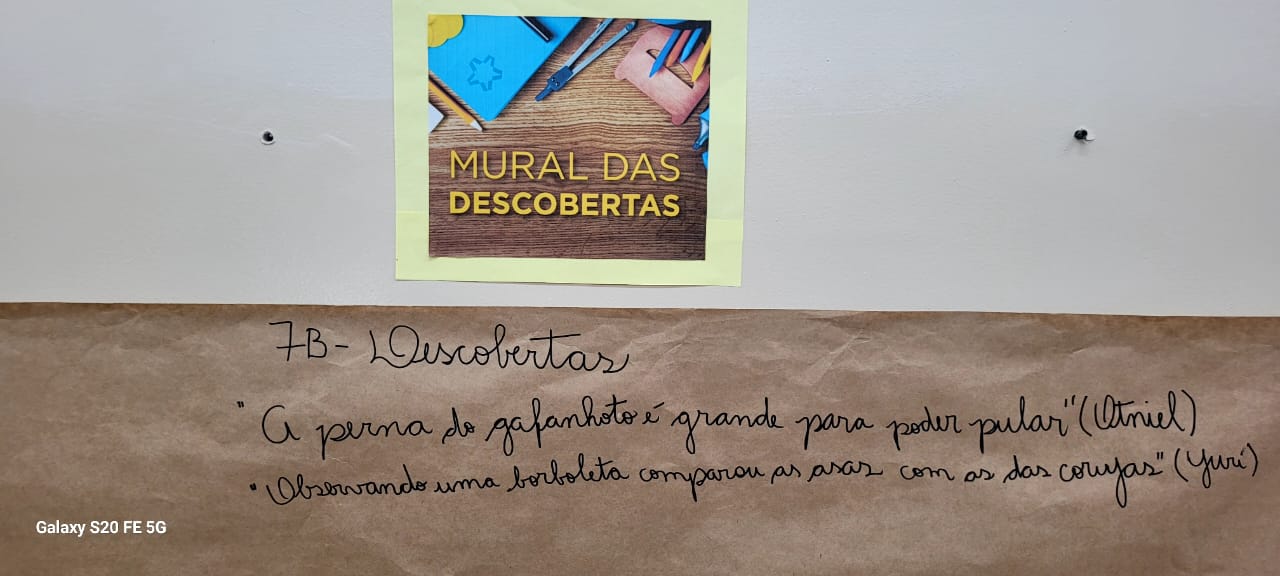 MURAL DAS
DESCOBERTAS
7B - Descobertas
"A perna do gafanhoto é grande para poder pular" (Otniel)
"Observando uma borboleta comparou as asas com as das corujas" (Yuri)
Galaxy S20 FE 5G